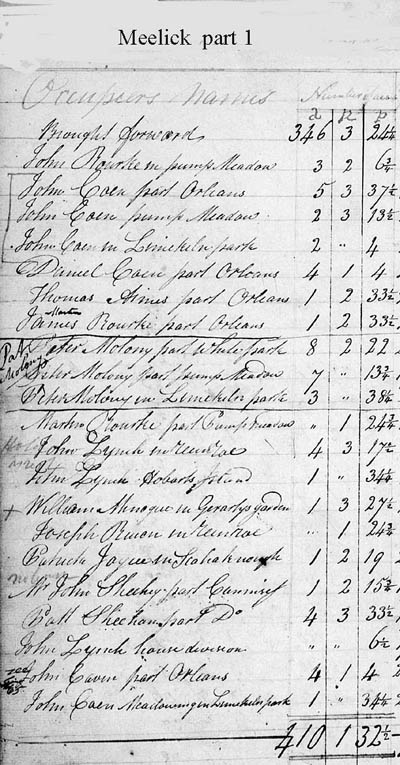 Meelick part 1
Occupiers Names Number
a R P
Brought forward 346 3 24¼
John Rourke in pump Meadow 3 2 6¾
John Coen part Orleans 5 3 37½
John Coen pump Meadow 2 3 13½
John Coen in Limekeln park 2 " 4
Daniel Coen part Orleans 4 1 4
Thomas Aimes part Orleans 1 2 33½
Martin
James Rourke part Orleans 1 2 33½
Pat Molony
Peter Molony part White park 8 2 22
Peter Molony part pump Meadow 7 " 13¾
Peter Molony in Limekeln park 3 " 38½
Martin Rourke part Pump Meadow " 1 24¾
John Lynch in 4 3 17½
John Lynch Hobarts Island 1 " 34¼
+ William Minogue in Gerartys garden 1 3 27½
Joseph in " 1 24¾
Patrick Joyce in 1 2 19
Mr John Sheehy part 1 2 15¾
Patt Sheehan part Do 4 3 33½
John Lynch house division " " 6½
John Caven part Orleans 4 1 4
John Caen Meadowing in Limekeln park 1 " 34¼
410 1 32½